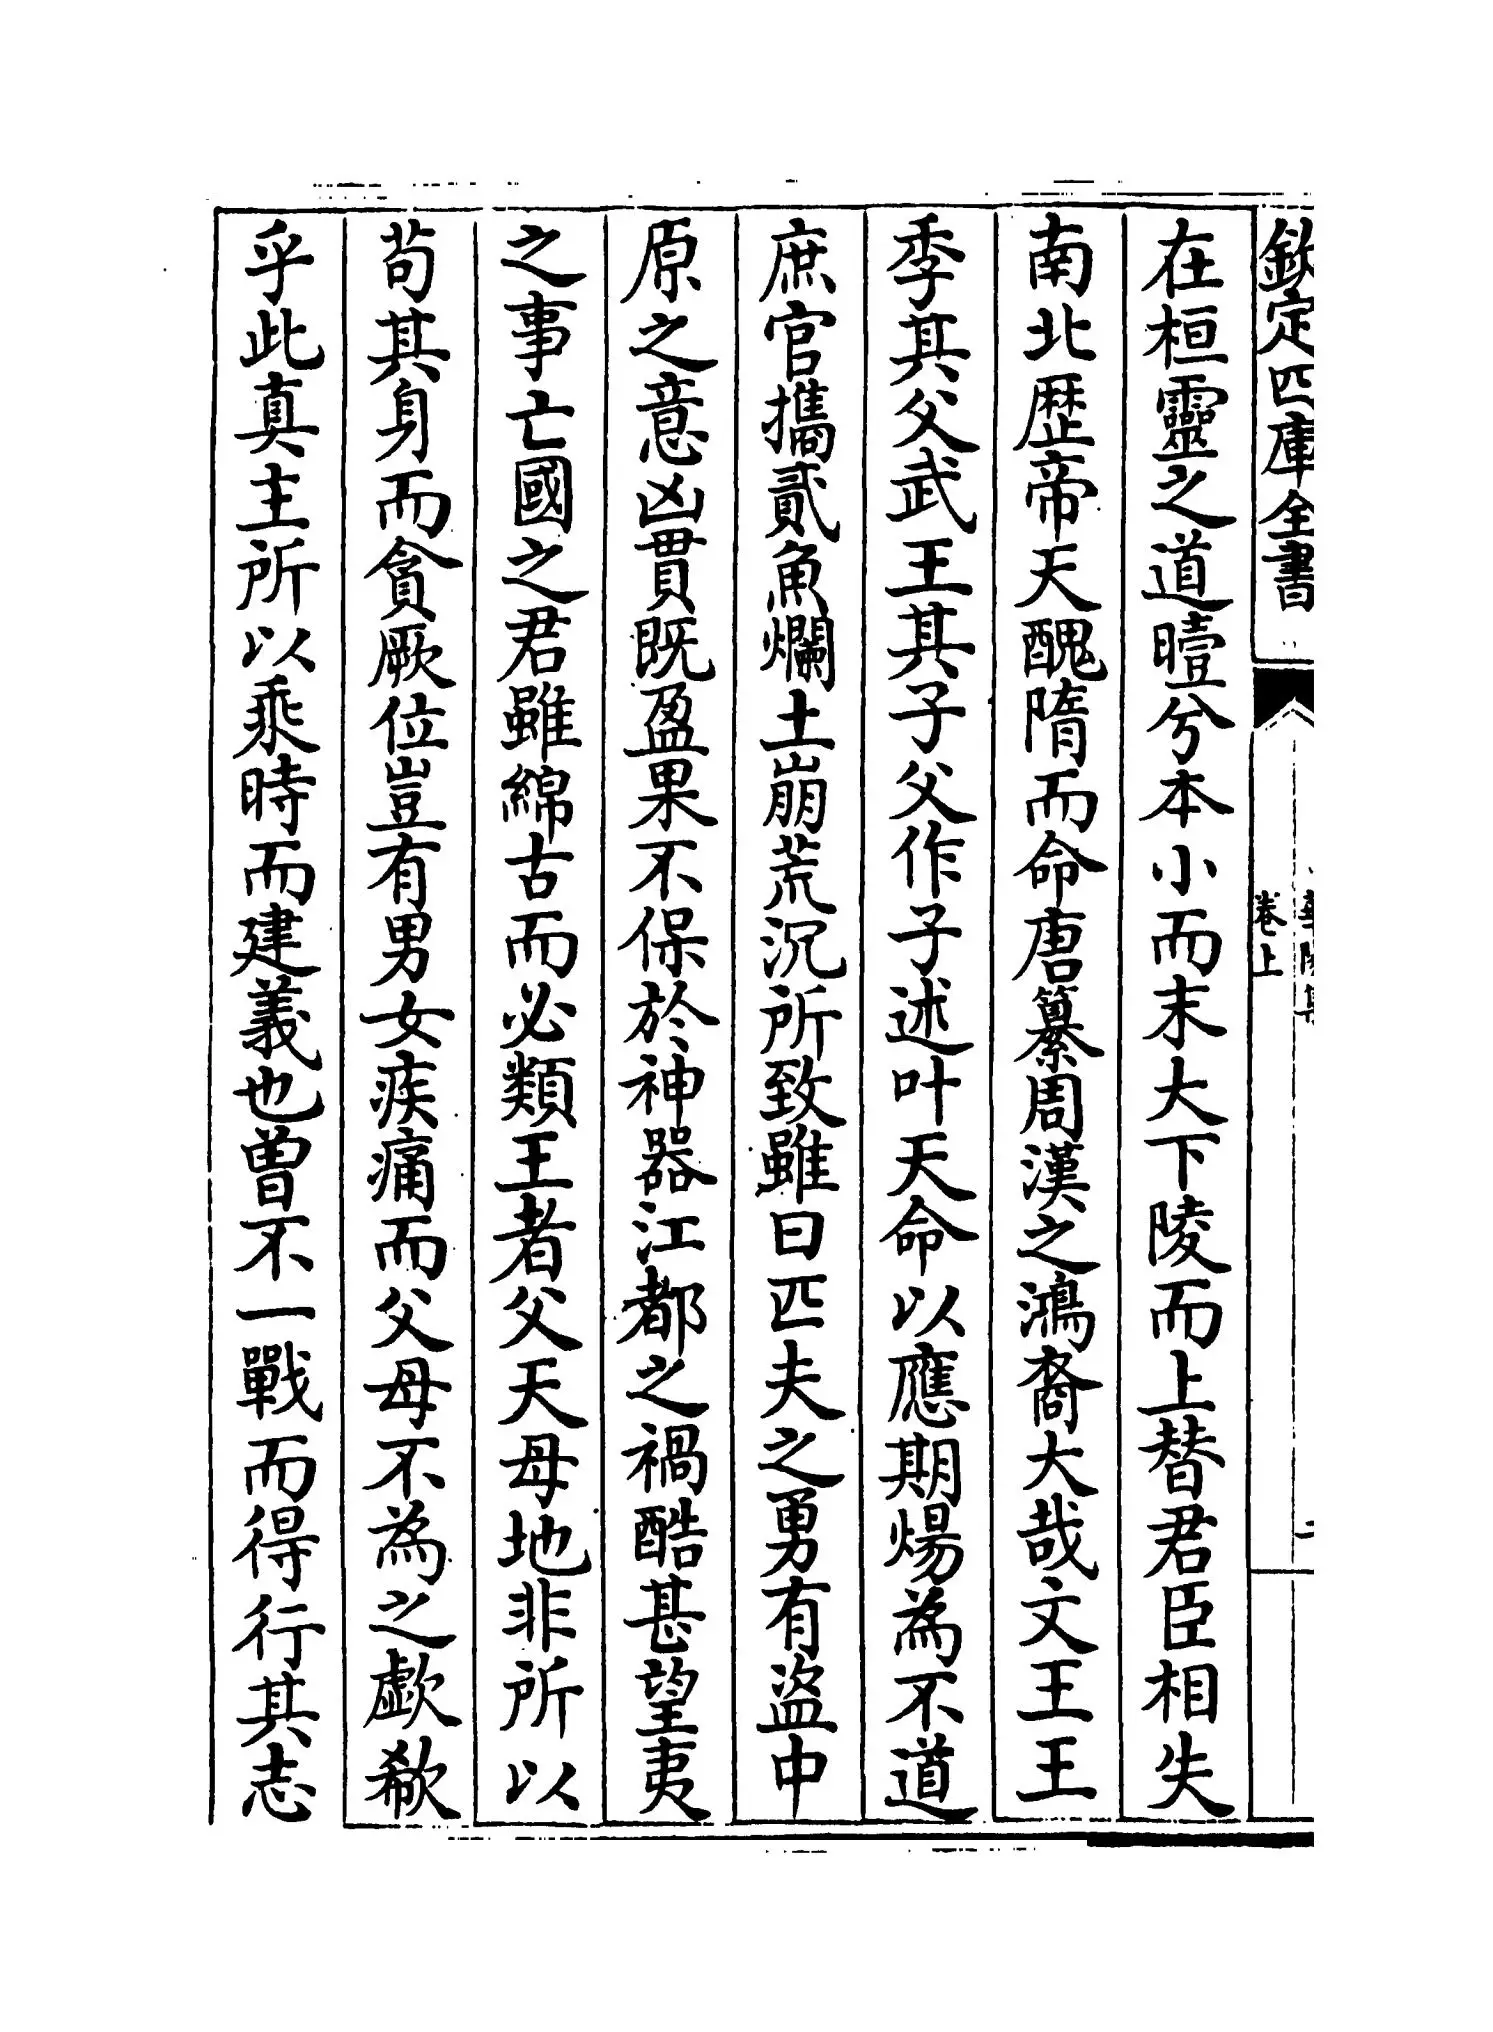 欽定四庫全書
卷上
在桓靈之道曀兮本小而末大下陵而上替君臣相失
南北歷帝天醜隋而命唐纂周漢之鴻裔大哉文王王
季其父武王其子父作子述叶天命以應期煬為不道
庶官攜貳魚爛土崩荒沉所致雖曰匹夫之勇有盜中
原之意凶貫既盈果不保於神器江都之禍酷甚望夷
之事亡國之君雖綿古而必類王者父天母地非所以
茍其身而貪厥位豈有男女疾痛而父母不為之歔欷
乎此真主所以乘時而建義也曾不一戰而得行其志